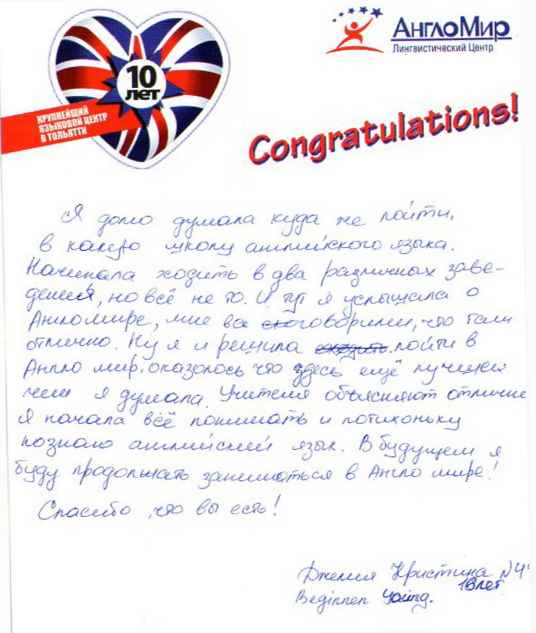 10
лет
КРУПНЕЙШИЙ
ЯЗЫКОВОЙ ЦЕНТР
В ТОЛЬЯТТИ
АнглоМир
Лингвистический Центр
Congratulations!
Я долго думала куда же пойти,
в какую школу английского языка.
Начинала ходить в два различных заве-
дения, но всё не то. И тут я услышала о
Англомире, мне все говорили, что там
отлично. Ну я и решила сходить пойти в
Англо мир. оказалось что здесь ещё лучшей
чем я думала. Учителя объясняют отлично
Я начала всё понимать и потихоньку
познаю английский язык. В будущем я
буду продолжать заниматься в Англо мире!
Спасибо, что вы есть!
Кристина
18 лет
Beginner Young.